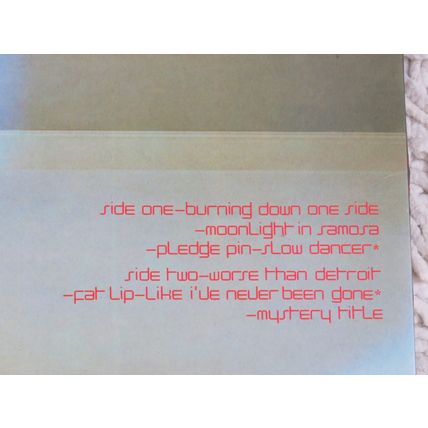 side one-burning down one side
-moonlight in samosa
-pledge pin-slow dancer*
side two-worse than detroit
-fat lip-like i've never been gone*
-mystery title